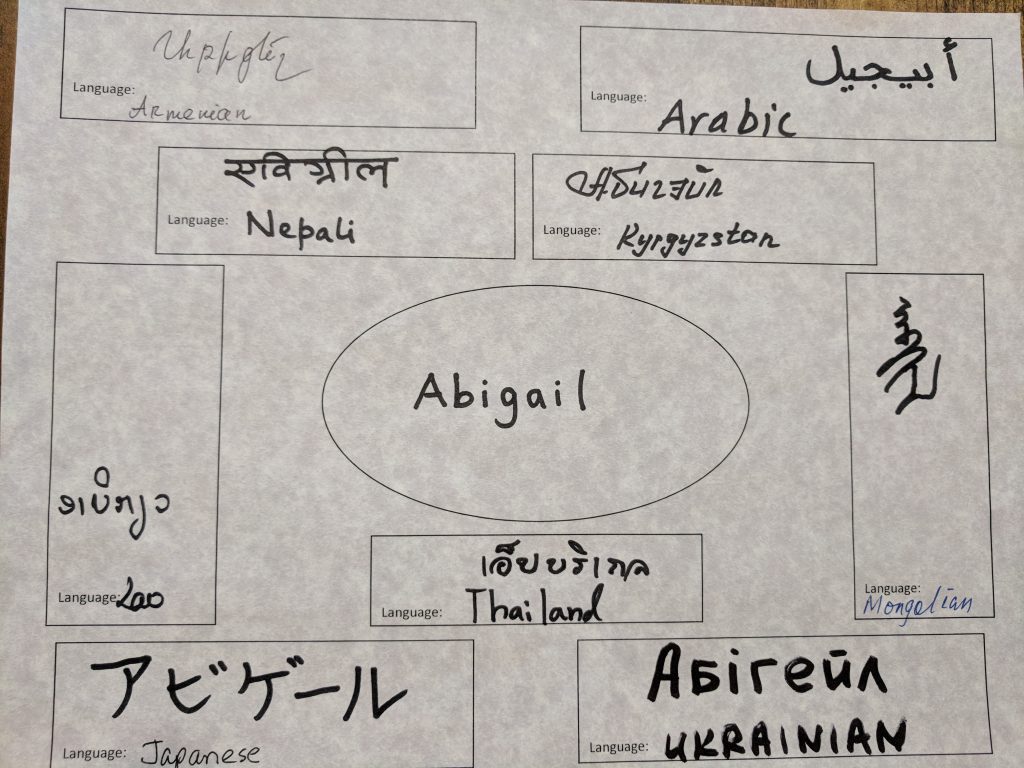 Language:
Armenian
أبيجيل
Language: Arabic
एविग्रील
Language: Nepali
Абигэйл
Language: Kyrgyzstan
Abigail
Language: Lao
เอ็ยบริเกล
Language: Thailand
Language:
Mongolian
アビゲール
Language: Japanese
Абігейл
Language: UKRAINIAN